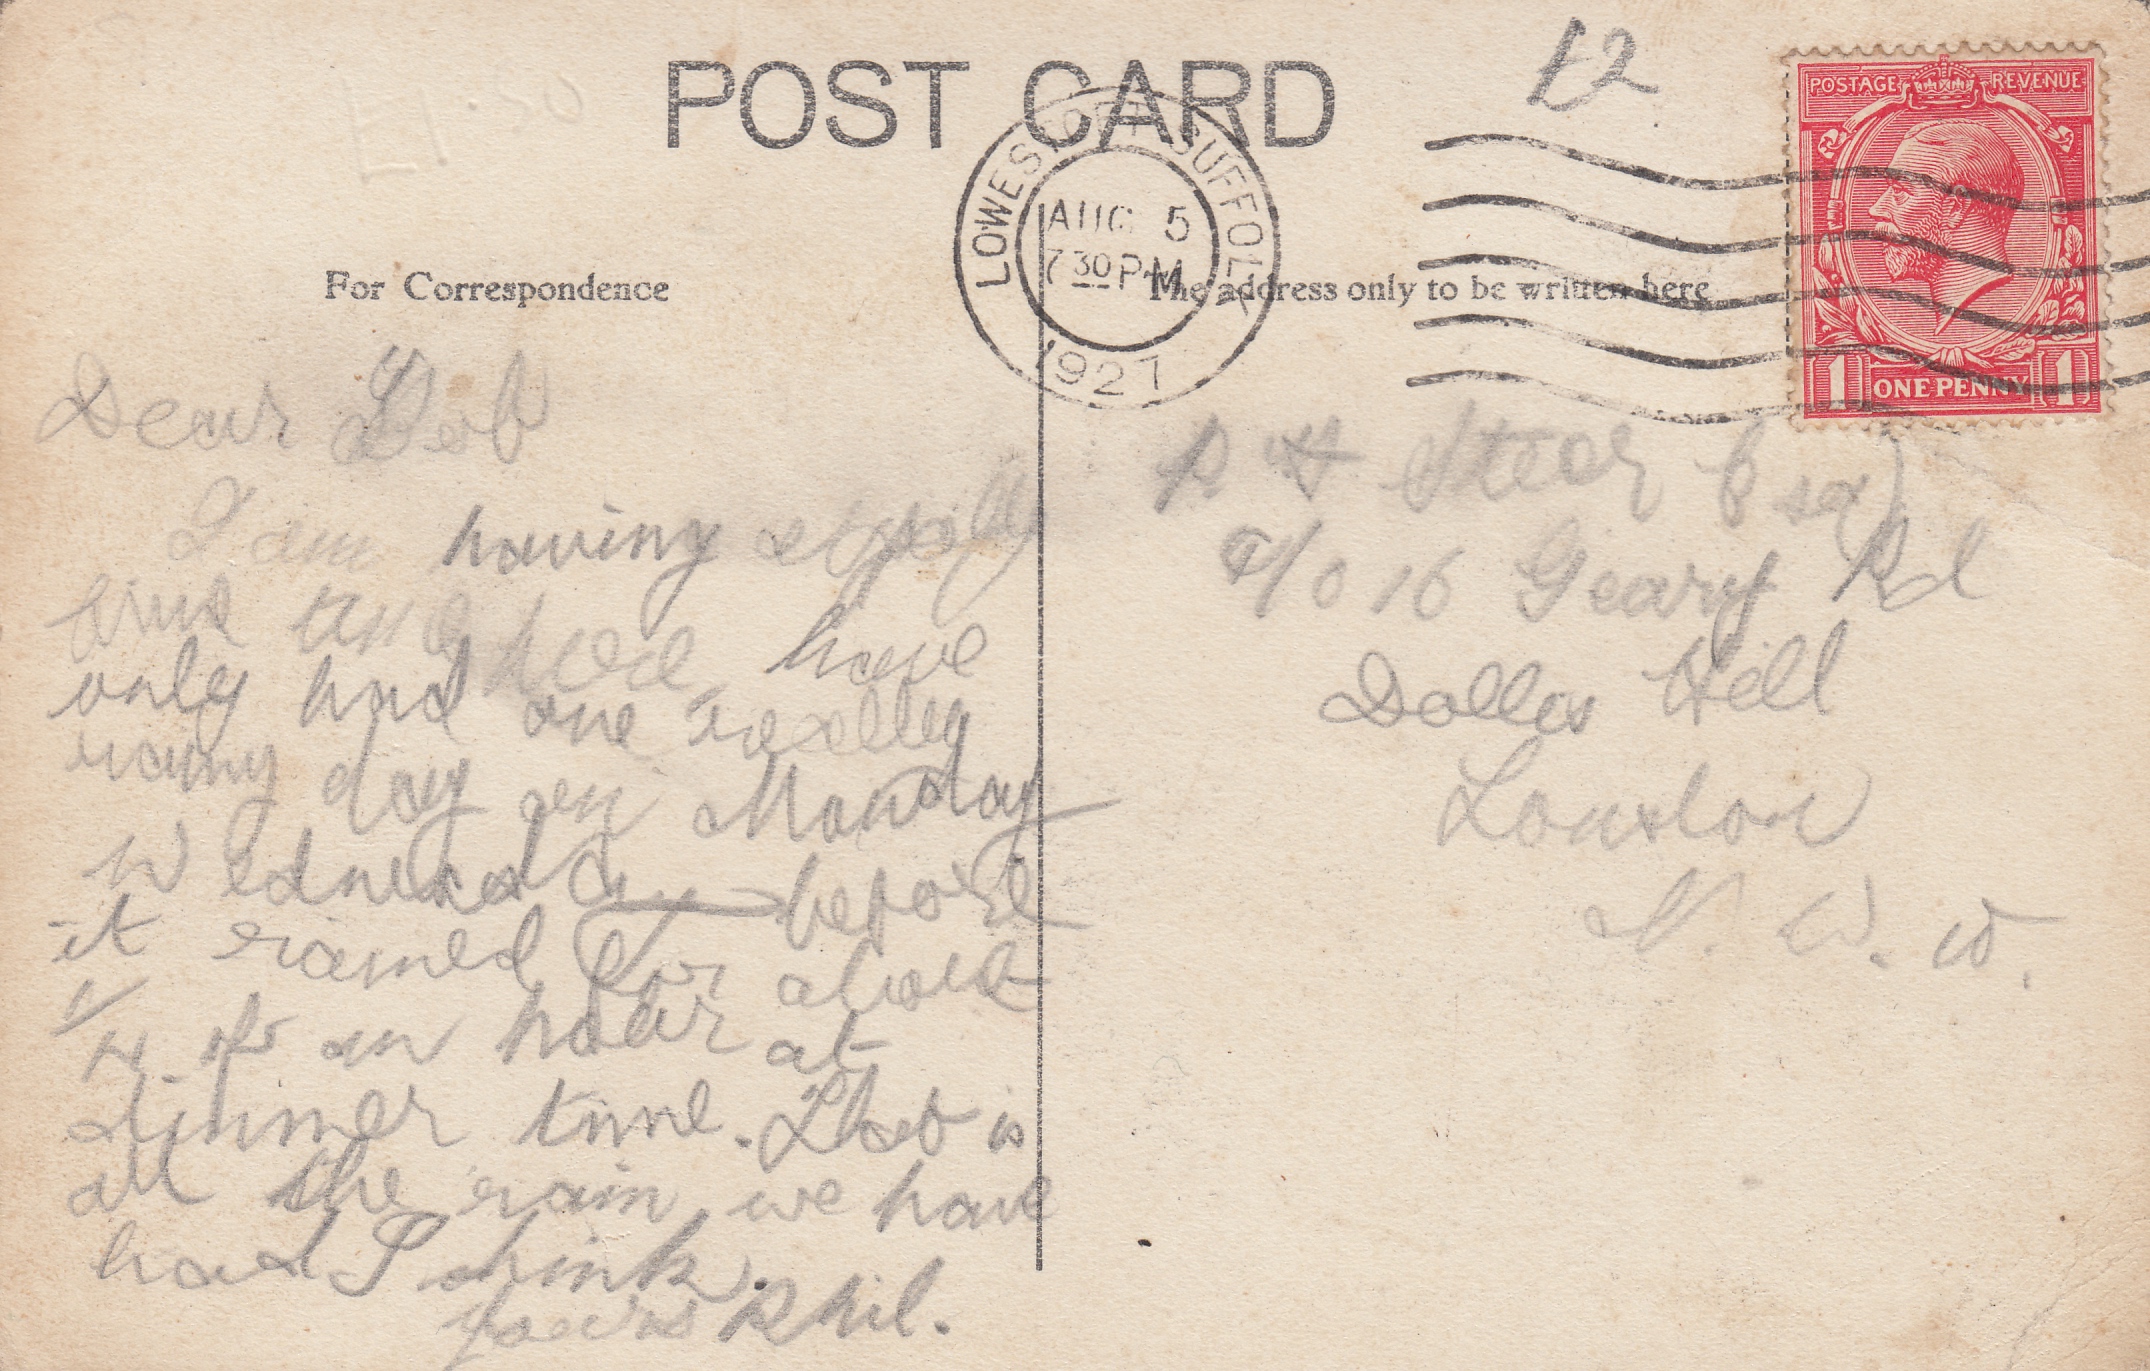 POST CARD
£2
£1.50
POSTAGE REVENUE
LOWESTOFT SUFFOLK
AUG 5
7 30 PM
1927
1 ONE PENNY 1
For Correspondence
The address only to be written here
Dear
I am having a
time and have
only had one really
rainy day on Monday
Wednesday before
it rained for about
1/4 of an hour at
dinner time. That is
all the rain we have
had I think.
Yours Phil.
R H Stear Esq
c/o 16 Geary Rd
Dollis Hill
London
N. W. 10.